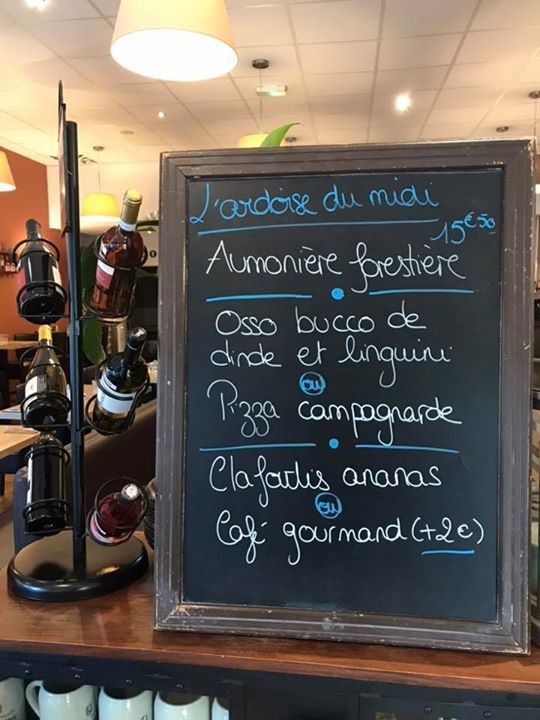 L'ardoise du midi
15€50
Aumonière forestière
Osso bucco de
dinde et linguini
ou
Pizza campagnarde
Clafoutis ananas
ou
Café gourmand (+2€)